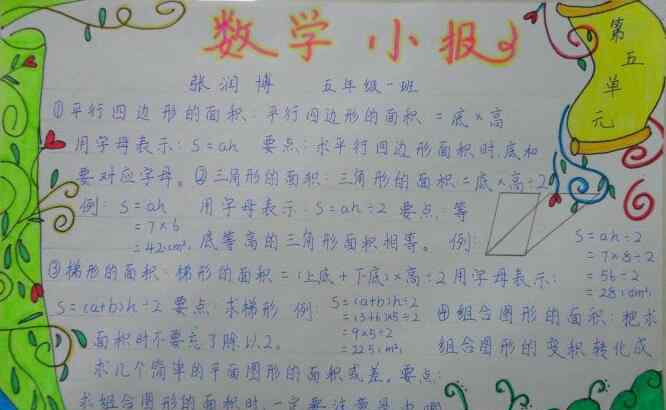 数学小报
第五单元
张润博 五年级一班
①平行四边形的面积:平行四边形的面积=底×高
用字母表示:S=ah 要点:求平行四边形面积时,底和
要对应字母。②三角形的面积:三角形的面积=底×高÷2
例:S=ah 用字母表示:S=ah÷2 要点:等
=7×6
=42(cm²) 底等高的三角形面积相等。例:
S=ah÷2
=7×8÷2
=56÷2
=28(cm²)
③梯形的面积:梯形的面积=(上底+下底)×高÷2 用字母表示:
S=(a+b)h÷2 要点:求梯形 例:
面积时不要忘了除以2。
S=(a+b)h÷2
=(3+6)×5÷2
=9×5÷2
=22.5(cm²)
④组合图形的面积:把求
组合图形的面积转化成
求几个简单的平面图形的面积或差。要点:
求组合图形的面积时,一定要注意